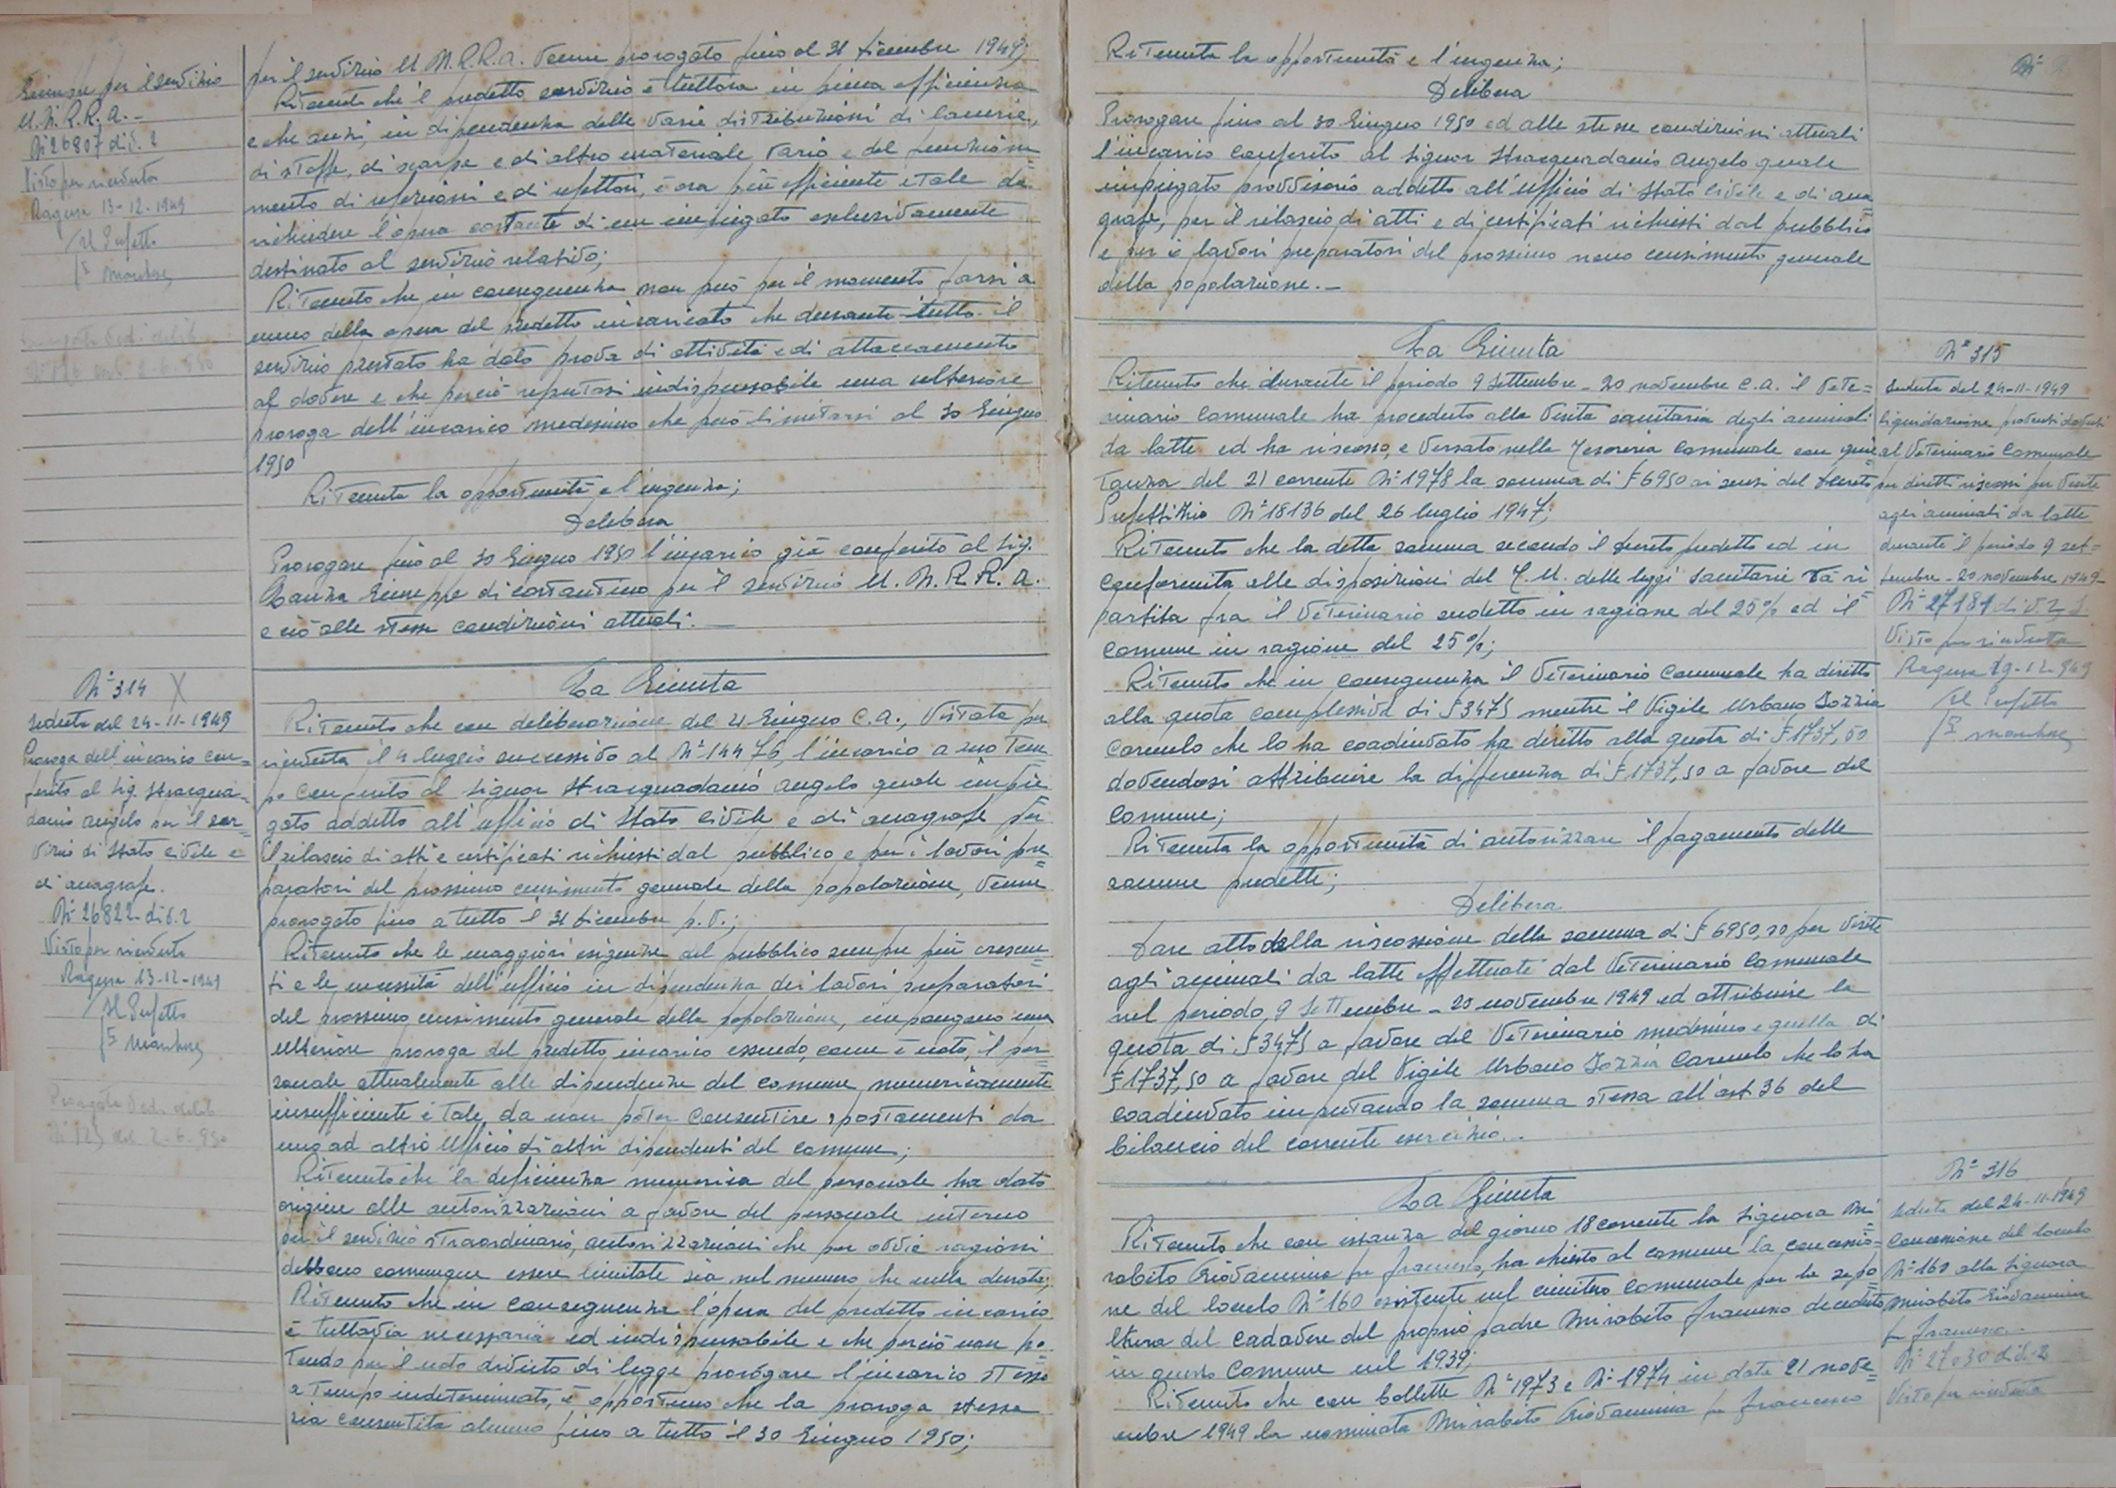 Giuseppe per il servizio
U.N.R.R.A.-
N° 26807 di S. 2
Visto per ricevuta
Ragusa 13-12-1949
Il Prefetto
per il servizio U.N.R.R.A. venne prorogato fino al 31 dicembre 1949;
Ritenuto che il predetto servizio è tuttora in piena efficienza
e che anzi, in dipendenza delle varie distribuzioni di lanerie,
di stoffe, di scarpe e di altro materiale vario e del funziona
mento di refezioni e di refettori, è ora più efficiente e tale da
richiedere l'opera costante di un impiegato esclusivamente
destinato al servizio relativo;
Ritenuto che in conseguenza non può per il momento farsi a
meno della opera del predetto incaricato che durante tutto il
servizio prestato ha dato prova di attività e di attaccamento
al dovere e che perciò reputasi indispensabile una ulteriore
proroga dell'incarico medesimo che può limitarsi al 30 Giugno
1950
Ritenuta la opportunità e l'urgenza;
Delibera
Prorogare fino al 30 Giugno 1950 l'incarico già conferito al Sig.
Giuseppe di Costantino per il servizio U.N.R.R.A.
e ciò alle stesse condizioni attuali.-
N° 314 X
Seduta del 24-11-1949
Proroga dell'incarico con=
ferito al Sig. Stracqua=
danio Angelo per il ser=
vizio di Stato Civile e
di anagrafe.
N° 26822 di S. 2
Visto per ricevuta
Ragusa 13-12-1949
Il Prefetto
Prorogato Ved. delib.
del 2-6-950
La Giunta
Ritenuto che con deliberazione del 4 Giugno c.a., vistata per
ricevuta il 4 luglio successivo al N° 14476, l'incarico a suo tem=
po conferito al Signor Stracquadanio Angelo quale impie=
gato addetto all'ufficio di Stato Civile e di anagrafe per
il rilascio di atti e certificati richiesti dal pubblico e per i lavori pre=
paratori del prossimo censimento generale della popolazione, venne
prorogato fino a tutto il 31 dicembre p.v.;
Ritenuto che le maggiori esigenze del pubblico sempre più crescen=
ti e le necessità dell'ufficio in dipendenza dei lavori preparatori
del prossimo censimento generale della popolazione, impongono una
ulteriore proroga del predetto incarico essendo, come è noto, il per=
sonale attualmente alle dipendenze del comune numericamente
insufficiente e tale da non poter consentire spostamenti da
uno ad altro Ufficio di altri dipendenti del comune;
Ritenuto che la deficienza numerica del personale ha dato
origine alle autorizzazioni a favore del personale interno
per il servizio straordinario, autorizzazioni che per ovvie ragioni
debbono comunque essere limitate sia nel numero che nella durata;
Ritenuto che in conseguenza l'opera del predetto incarico
è tuttavia necessaria ed indispensabile e che perciò non po=
tendo per il noto divieto di legge prorogare l'incarico stesso
a tempo indeterminato, è opportuno che la proroga stessa
sia consentita almeno fino a tutto il 30 Giugno 1950;
Ritenuta la opportunità e l'urgenza;
Delibera
Prorogare fino al 30 Giugno 1950 ed alle stesse condizioni attuali
l'incarico conferito al Signor Stracquadanio Angelo quale
impiegato provvisorio addetto all'Ufficio di Stato Civile e di ana=
grafe, per il rilascio di atti e di certificati richiesti dal pubblico
e per i lavori preparatori del prossimo nono censimento generale
della popolazione.-
La Giunta
Ritenuto che durante il periodo 9 Settembre - 20 novembre c.a. il vete=
rinario comunale ha proceduto alla visita sanitaria degli animali
da latte ed ha riscosso e versato nella Tesoreria comunale con quie=
tanza del 21 corrente N° 1978 la somma di £ 6950 ai sensi del decreto
Prefettizio N° 18136 del 26 luglio 1947;
Ritenuto che la detta somma secondo il decreto predetto ed in
conformità alle disposizioni del T.U. delle leggi sanitarie va ri=
partita fra il Veterinario suddetto in ragione del 25% ed il
comune in ragione del 25%;
Ritenuto che in conseguenza il Veterinario Comunale ha diritto
alla quota complessiva di £ 3475 mentre il Vigile Urbano Iozzia
Carmelo che lo ha coadiuvato ha diritto alla quota di £ 1737,50
dovendosi attribuire la differenza di £ 1737,50 a favore del
Comune;
Ritenuta la opportunità di autorizzare il pagamento delle
somme predette;
Delibera
Dare atto della riscossione della somma di £ 6950,00 per visite
agli animali da latte effettuate dal Veterinario Comunale
nel periodo 9 Settembre - 20 novembre 1949 ed attribuire la
quota di £ 3475 a favore del Veterinario medesimo e quella di
£ 1737,50 a favore del Vigile Urbano Iozzia Carmelo che lo ha
coadiuvato imputando la somma stessa all'art 36 del
bilancio del corrente esercizio.-
N° 315
Seduta del 24-11-1949
Liquidazione proventi dovuti
al Veterinario Comunale
per diritti riscossi per visite
agli animali da latte
durante il periodo 9 set=
tembre - 20 novembre 1949-
N° 27181 di S. 2
Visto per ricevuta
Ragusa 19-12-949
Il Prefetto
La Giunta
Ritenuto che con istanza del giorno 18 corrente la Signora Mi=
rabito Giovannina fu Francesco, ha chiesto al comune la concessio=
ne del loculo N° 160 esistente nel cimitero comunale per la sepo=
ltura del cadavere del proprio padre Mirabito Francesco deceduto
in questo Comune nel 1939;
Ritenuto che con bollette N° 1973 e N° 1974 in data 21 nove=
mbre 1949 la nominata Mirabito Giovannina fu Francesco
N° 316
Seduta del 24-11-1949
Concessione del loculo
N° 160 alla Signora
Mirabito Giovannina
fu Francesco.
N° 27030 di S. 2
Visto per ricevuta